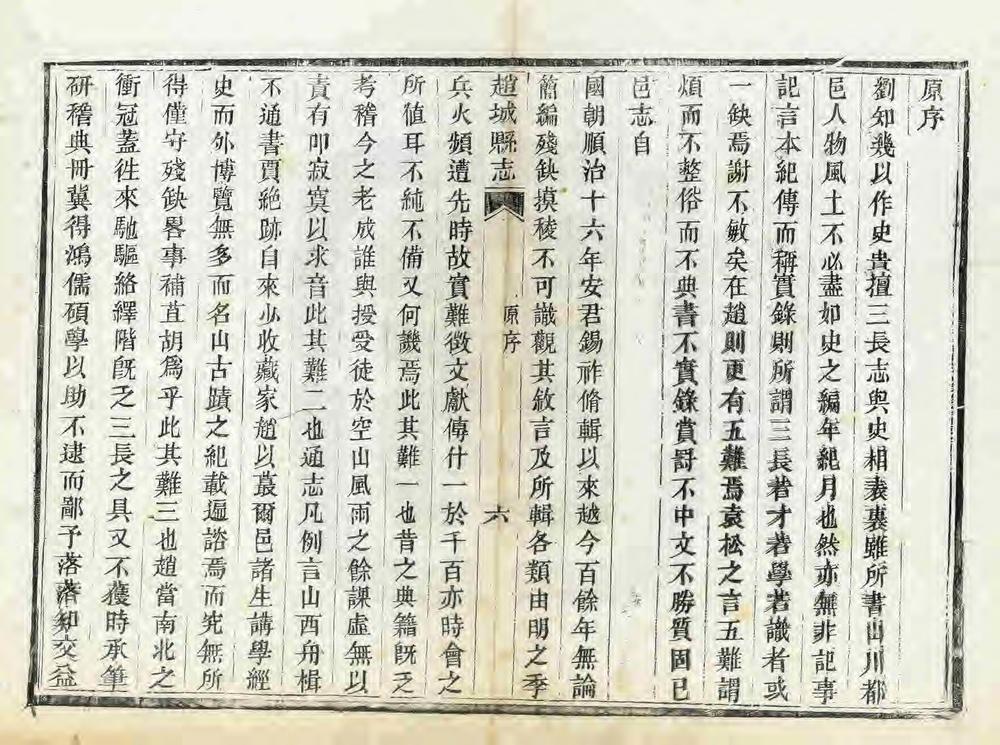 原序
劉知幾以作史貴擅三長志與史相表裏雖所書山川都
邑人物風土不必盡如史之編年紀月也然亦無非記事
記言本紀傳而稱實錄則所謂三長者才若學若識者或
一缺焉謝不敏矣在趙則更有五難焉袁松之言五難謂
煩而不整俗而不典書不實錄賞罸不中文不勝質固已
邑志自
國朝順治十六年安君錫祚脩輯以來越今百餘年無論
簡編殘缺摸稜不可識觀其敘言及所輯各類由明之季
趙城縣志 原序 六
兵火頻遭先時故實難徵文獻傳什一於千百亦時會之
所値耳不純不備又何譏焉此其難一也昔之典籍旣乏
考稽今之老成誰與授受徒於空山風雨之餘課虛無以
責有叩寂寞以求音此其難二也通志凡例言山西舟楫
不通書賈絶跡自來少收藏家趙以蕞爾邑諸生講學經
史而外博覽無多而名山古蹟之紀載遍諮焉而究無所
得僅守殘缺畧事補苴胡爲乎此其難三也趙當南北之
衝冠蓋徃來馳驅絡繹階旣乏三長之具又不獲時承筆
研稽典冊冀得鴻儒碩學以助不逮而鄙予落落知交益